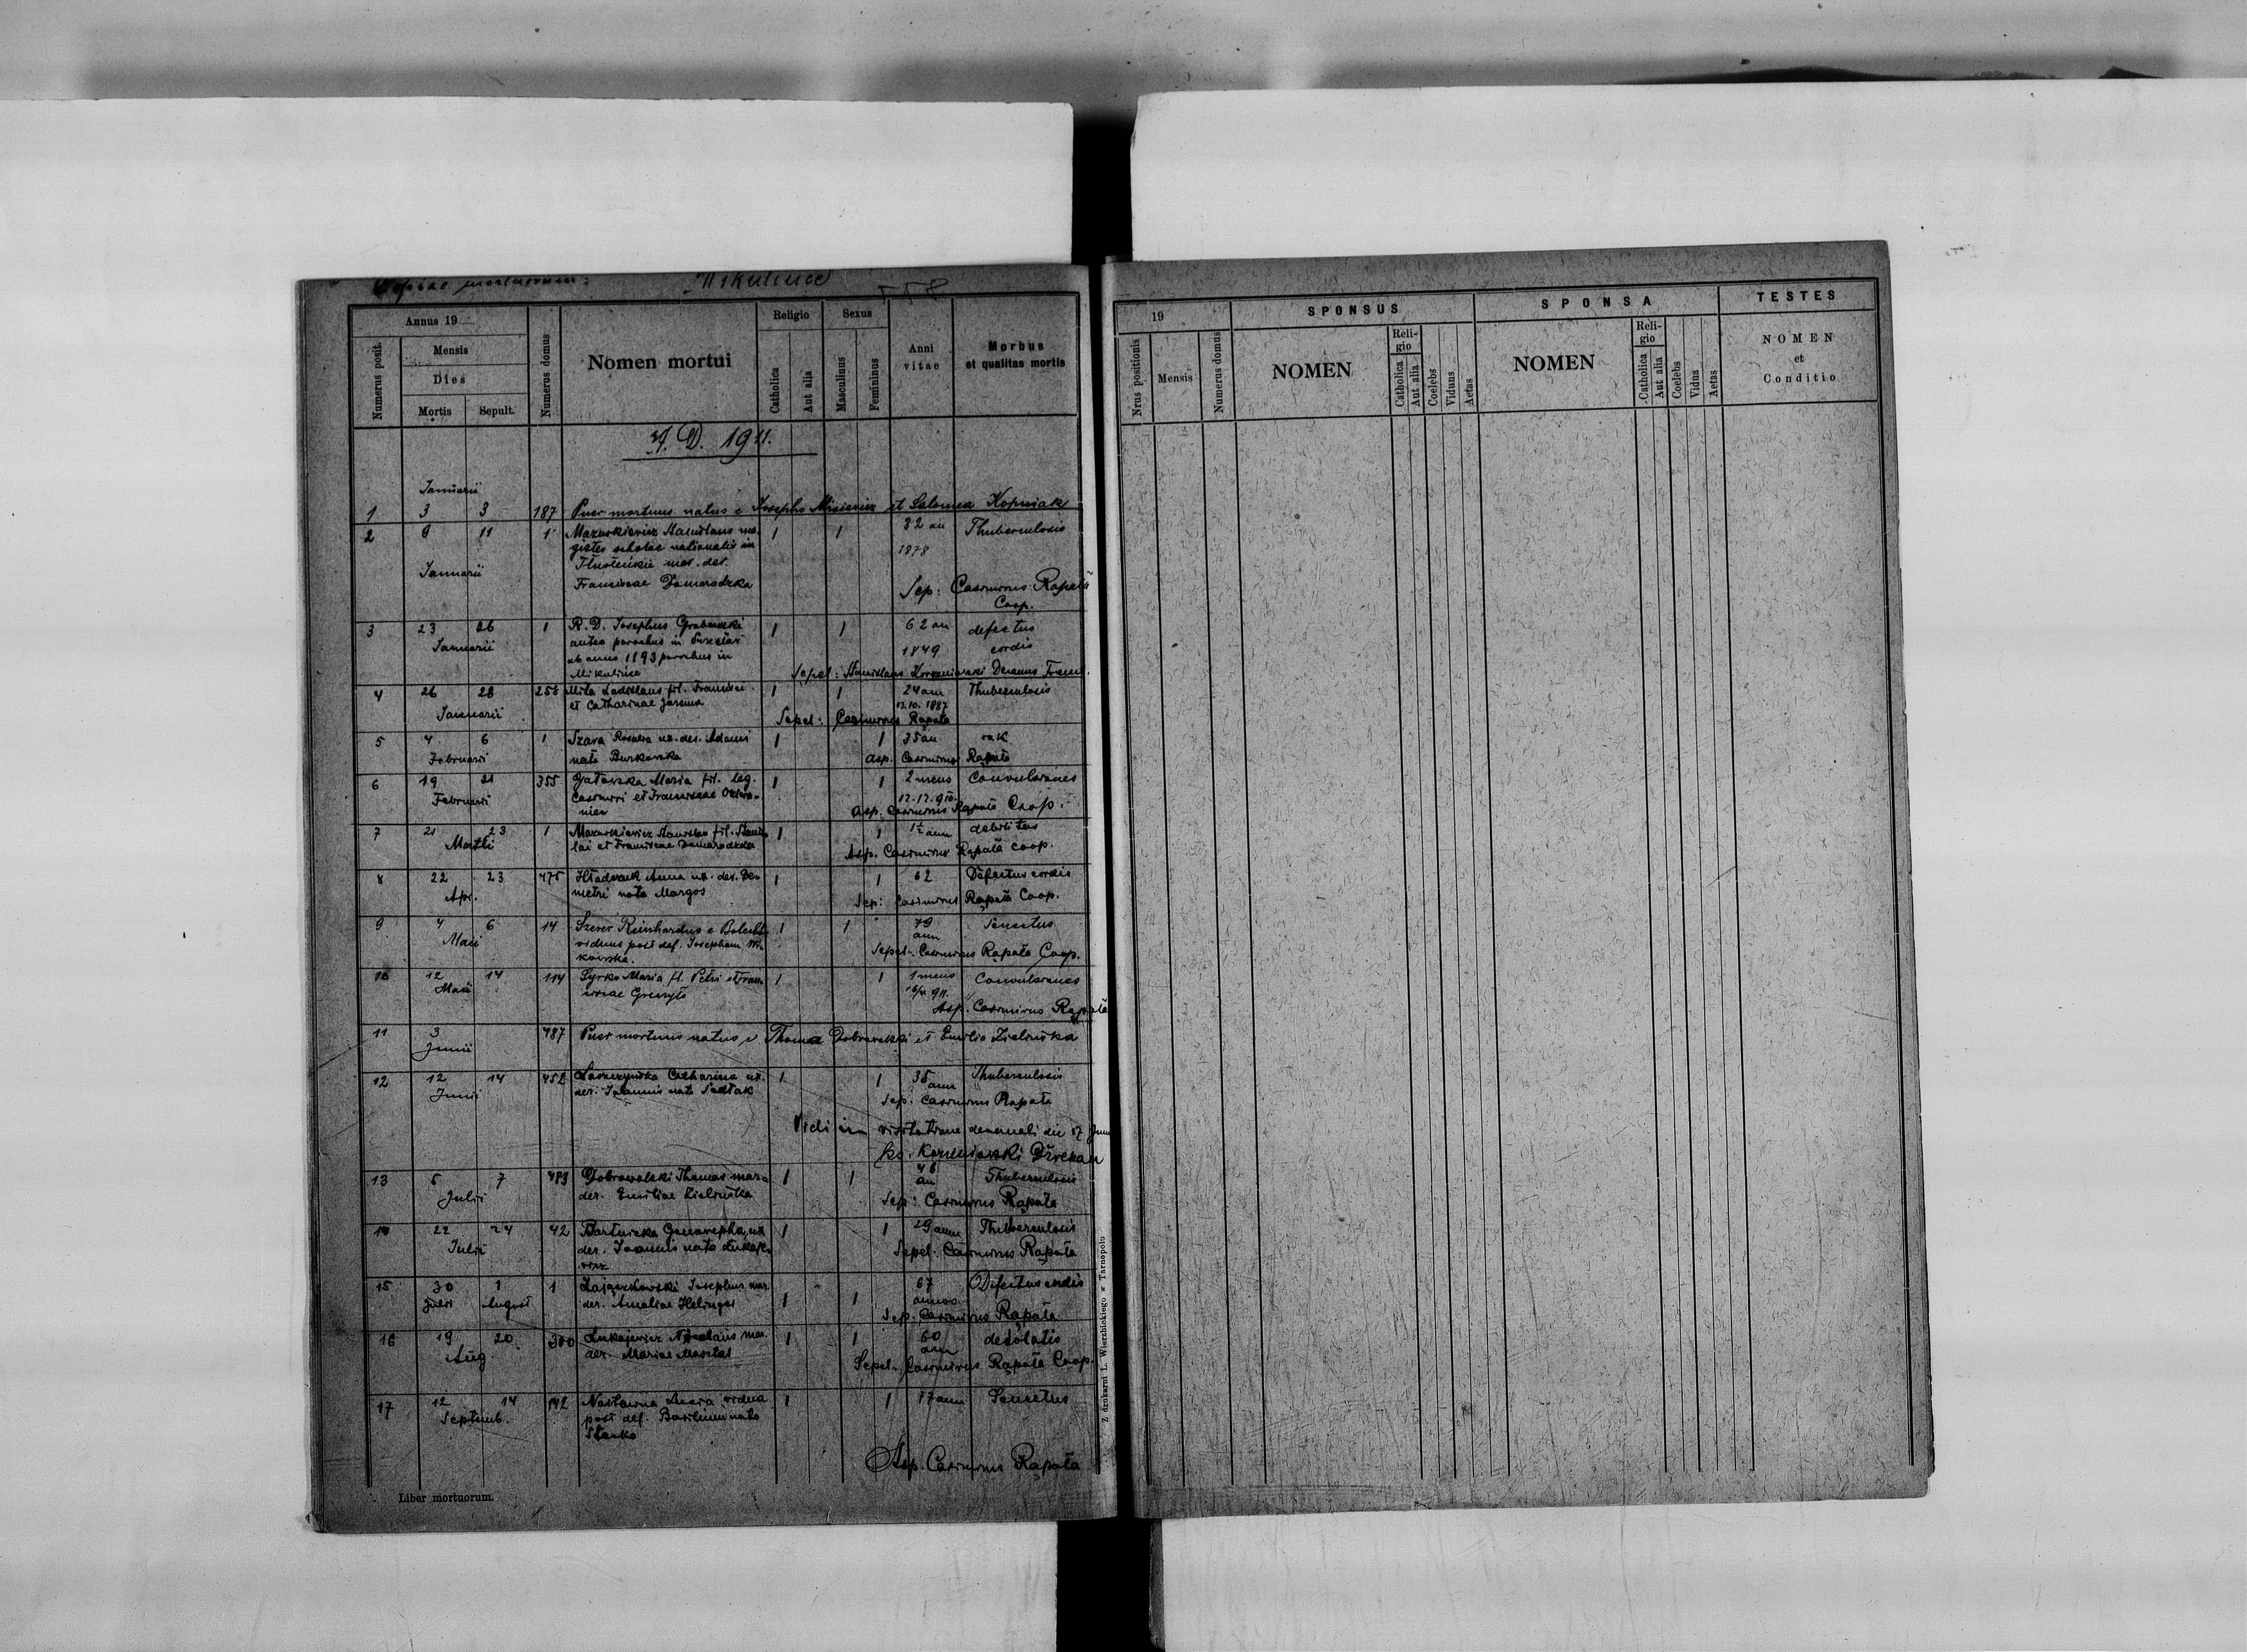 Copiae mortuorum: Mikulince 558
Annus 19
Numerus posit.
Mensis
Dies
Mortis Sepult.
Numerus domus
Nomen mortui
Religio
Catholica
Aut alia
Sexus
Masculinus
Femininus
Anni vitae
Morbus
et qualitas mortis
A. D. 1911.
Januarii
1 3 3 187 Puer mortuus natus e Josepho Misiewicz et Salomea Kopniak
2 9 11 1 Mazurkiewicz Stanislaus ma- 1 1 32 an Thuberculosis
gister scholae nationalis in 1878
Januarii mar. der.
Franciscae Domaradzka
Sep: Casimirus Rapała
Coop.
3 23 26 1 R. D. Josephus Grabowski 1 1 62 an defectus
Januarii antea parochus in 1849 cordis
ab anno 1893 parochus in
Mikulince Sepel: Stanislaus Korzeniowski Decanus
4 26 28 258 Miła Ladislaus fil. Francisci 1 1 24 ann Thuberculosis
Januarii et Catharinae Jarema 13.10.1887
Sepel: Casimirus Rapała
5 4 6 1 Szara Rosalia ux. der. Adami 1 1 35 an rak
Februarii nata Burkowska Asp. Casimirus Rapała
6 19 21 355 Maria fil. leg. 1 1 2 mens Convulsiones
Februarii Casimiri et Franciscae
Asp. Casimirus Rapała Coop.
7 21 23 1 Mazurkiewicz Stanislaa fil. Stanis- 1 1 1½ ann debilitas
Martii lai et Franciscae Domaradzka
Asp. Casimirus Rapała coop.
8 22 23 475 Anna ux. der. De- 1 1 62 Defectus cordis
Apr. metri nata Margos Sep: Casimirus Rapała Coop.
9 4 6 14 Szerer Reinhardus e 1 1 79 Senectus
Maii viduus post def. Josepham ann
kowska. Sepel. Casimirus Rapała Coop.
10 12 14 114 Syrko Maria fil. Petri et Fran- 1 1 1 mens Convulsiones
Maii ciscae 911.
Asp. Casimirus Rapała
11 3 487 Puer mortuus natus e Thoma Dobrowolski et Emilia Zielińska
Junii
12 12 14 452 Laszczyńska Catharina ux. 1 1 35 ann Thuberculosis
Junii der. Joannis nata Sadłak
Sep. Casimirus Rapała
Vidi in visitatione decanali die 17 Junii
Ks. Korzeniowski Dziekan
13 5 7 489 Dobrowolski Thomas mar. 1 1 46 an Thuberculosis
Julii der. Emiliae Zielińska
Sep: Casimirus Rapała
14 22 24 42 Bartnicka Genovepha, ux 1 1 29 ann Thuberculosis
Julii der. Joannis nata Łukaje-
wicz Sepel. Casimirus Rapała
15 30 1 1 Zajączkowski Josephus mar. 1 1 67 annos Defectus cordis
Julii August der. Amaliae Helinger
Sep. Casimirus Rapała
16 19 20 300 Łukajewicz Nicolaus mar. 1 1 60 ann
Aug der. Mariae
Sepel. Casimirus Rapała Coop.
17 12 14 142 Lucia vidua 1 1 77 ann Senectus
Septemb. post def. Basilium nata
Asp. Casimirus Rapała
Liber mortuorum.
Z drukarni L. Wierzbickiego w Tarnopolu
19
Nrus positionis
Mensis
Numerus domus
SPONSUS
NOMEN
Reli-
gio
Catholica
Aut alia
Coelebs
Viduus
Aetas
SPONSA
NOMEN
Reli-
gio
Catholica
Aut alia
Coelebs
Vidua
Aetas
TESTES
NOMEN
et
Conditio